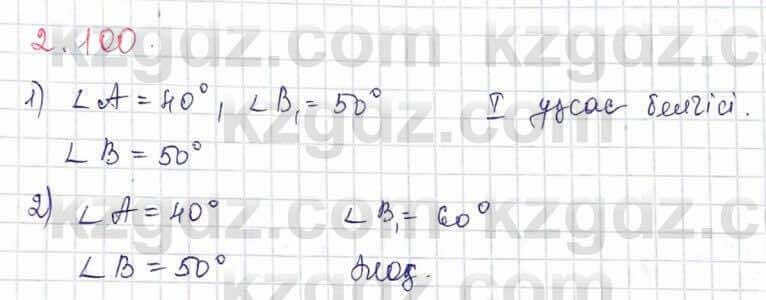 2.100.
1) ∠A = 40°, ∠B₁ = 50° I ұқсас белгісі.
∠B = 50°
2) ∠A = 40° ∠B₁ = 60°
∠B = 50° жоқ.
kzgdz.com kzgdz.com
kzgdz.com kzgdz.com
kzgdz.com kzgdz.com